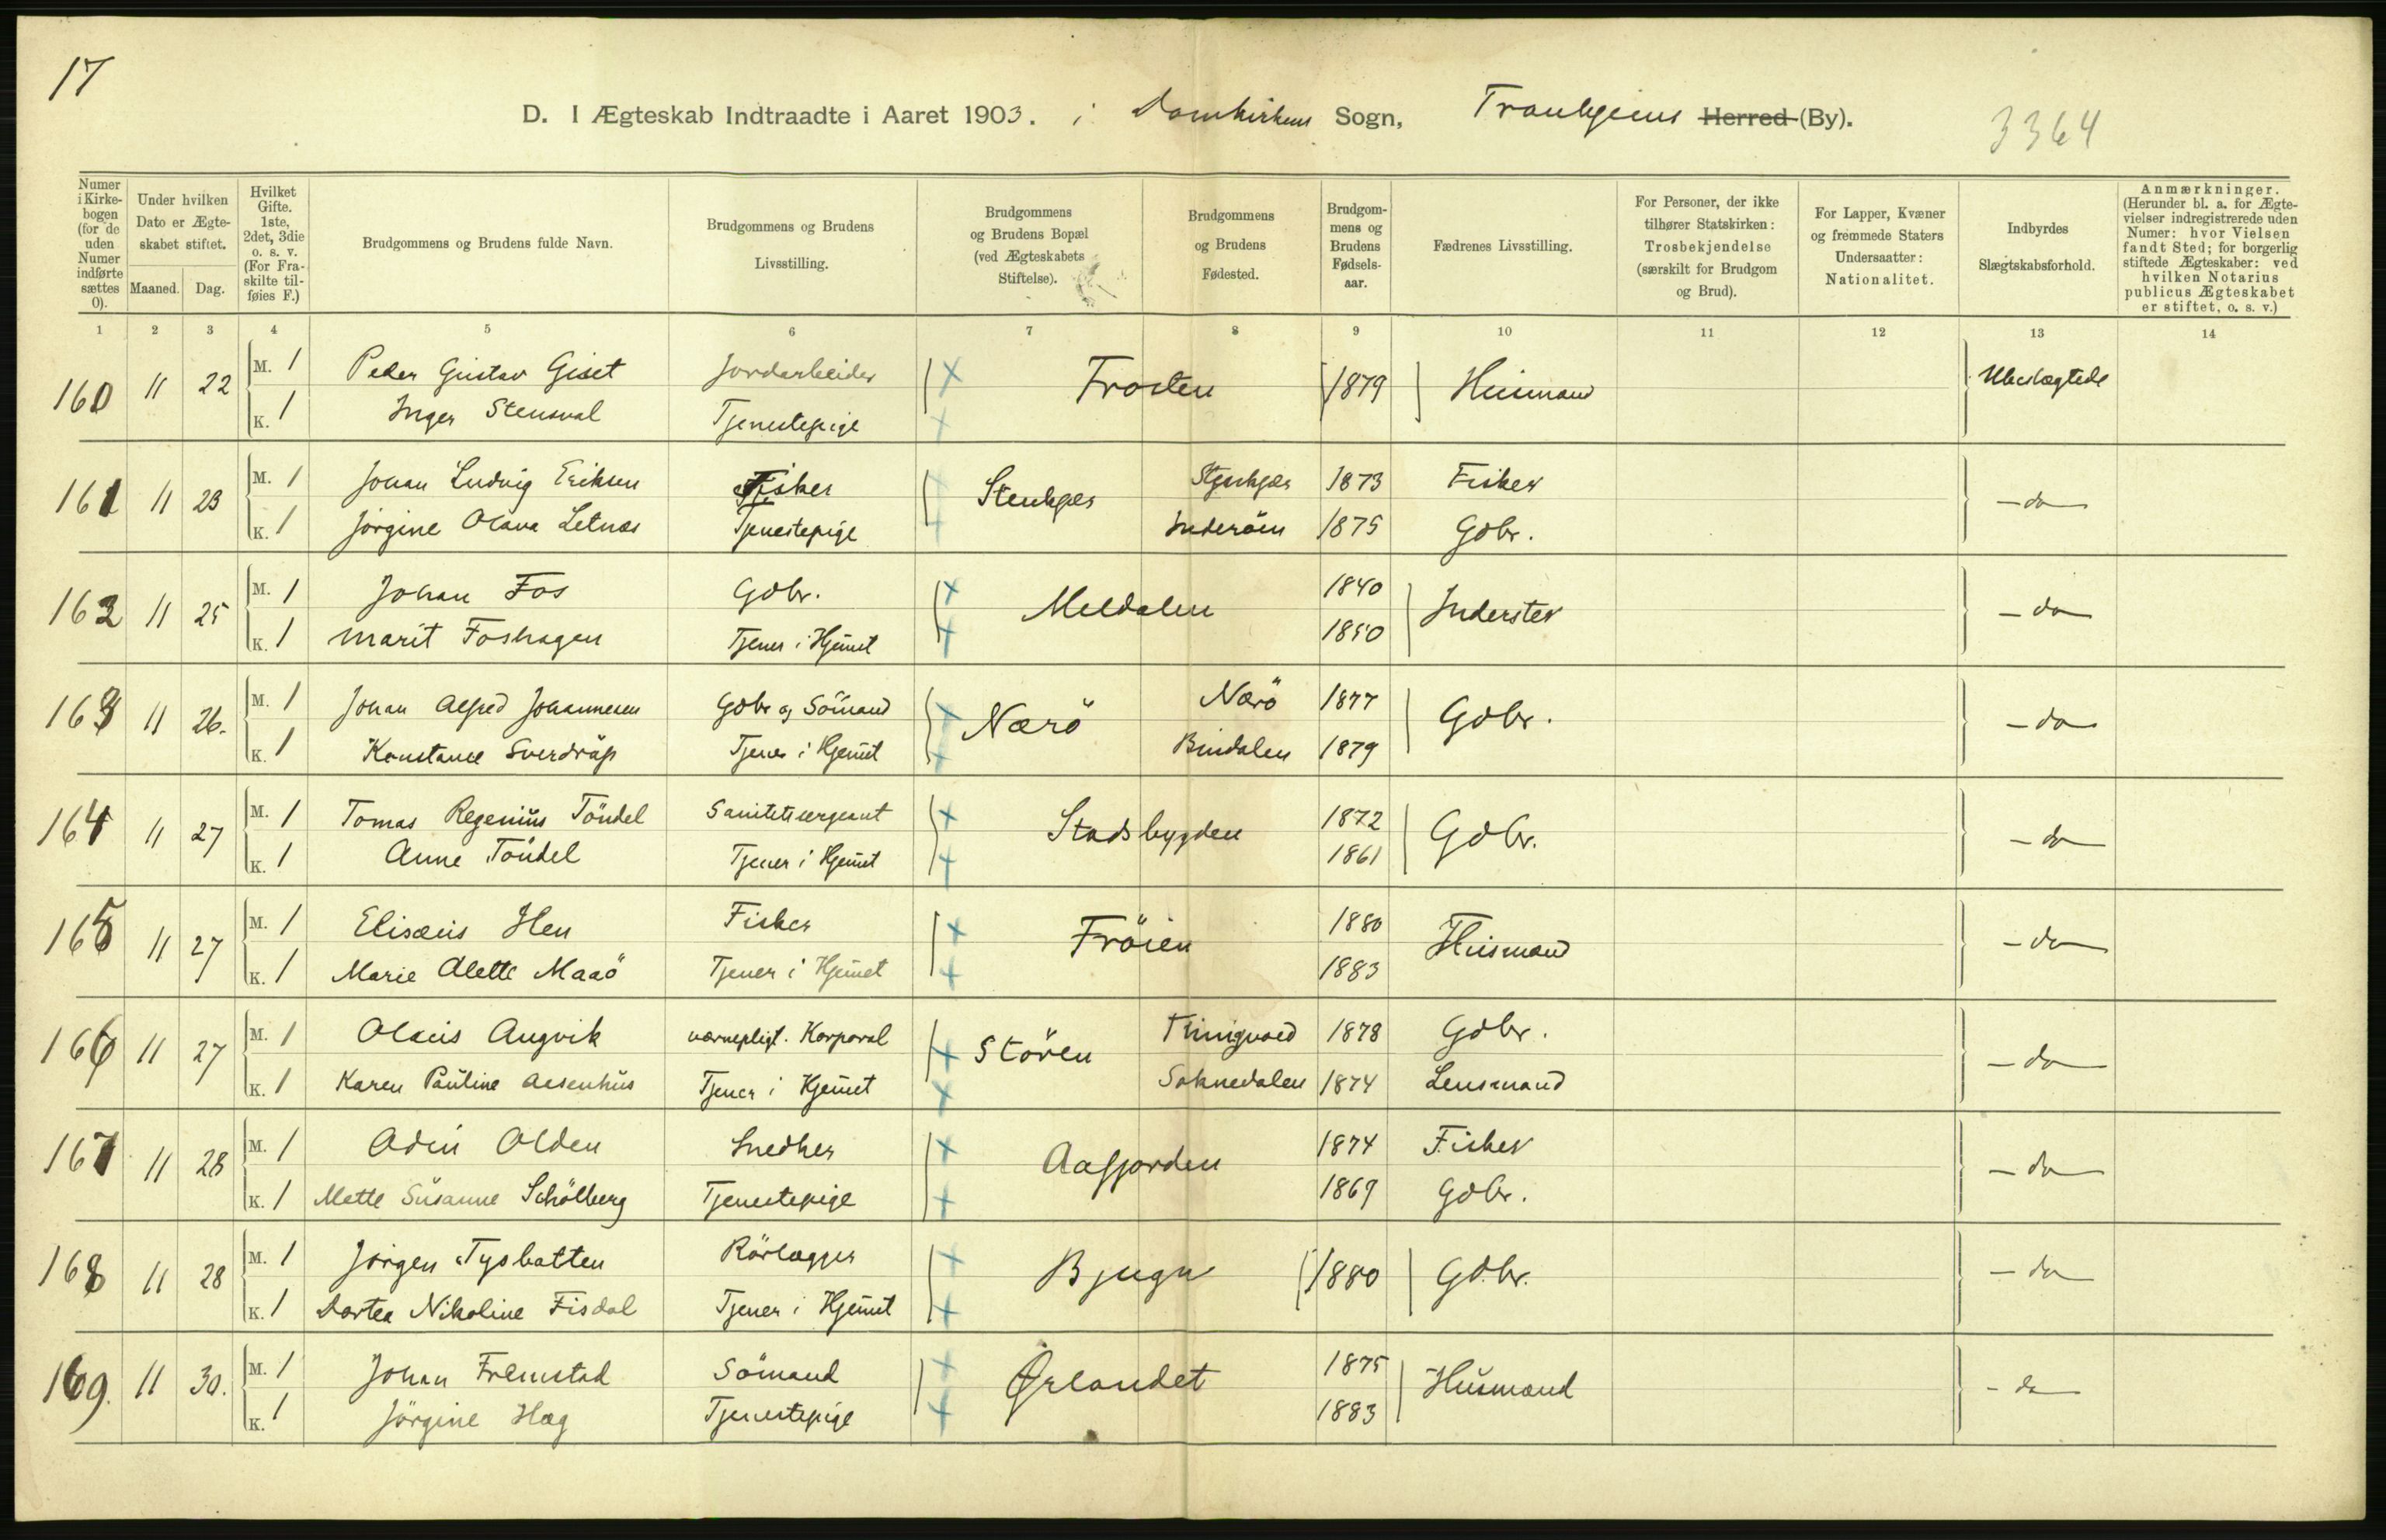 17
D. I Ægteskab Indtraadte i Aaret 1903. i Domkirkens Sogn, Trondhjems Herred (By). 3364
Numer i Kirkebogen (for de uden Numer indførte sættes 0).
Under hvilken Dato er Ægteskabet stiftet.
Maaned. Dag.
Hvilket Gifte. 1ste, 2det, 3die o. s. v. (For Fraskilte tilføies F.)
Brudgommens og Brudens fulde Navn.
Brudgommens og Brudens Livsstilling.
Brudgommens og Brudens Bopæl (ved Ægteskabets Stiftelse).
Brudgommens og Brudens Fødested.
Brudgommens og Brudens Fødselsaar.
Fædrenes Livsstilling.
For Personer, der ikke tilhører Statskirken: Trosbekjendelse (særskilt for Brudgom og Brud).
For Lapper, Kvæner og fremmede Staters Undersaatter: Nationalitet.
Indbyrdes Slægtskabsforhold.
Anmærkninger. (Herunder bl. a. for Ægtevielser indregistrerede uden Numer: hvor Vielsen fandt Sted; for borgerlig stiftede Ægteskaber: ved hvilken Notarius publicus Ægteskabet er stiftet, o. s. v.)
1 2 3 4 5 6 7 8 9 10 11 12 13 14
160 11 22 M. 1 Peder Gustav Giset Jordarbeider Frosten 1879 Husmand Ubeslægtede
K. 1 Inger Stensval Tjenestepige
161 11 23 M. 1 Johan Ludvig Eriksen Fisker Stenkjær Stenkjær 1873 Fisker - do -
K. 1 Jörgine Olava Letnæs Tjenestepige Inderöen 1875 Gdbr.
162 11 25 M. 1 Johan Fos Gdbr. Meldalen 1840 Inderster - do
K. 1 Marit Foshagen Tjener i Hjemmet 1850
163 11 26. M. 1 Johan Alfred Johannesen Gdbr og Sömand Nærö Nærö 1877 Gdbr. - do
K. 1 Konstance Sverdrup Tjener i Hjemmet Bindalen 1879
164 11 27 M. 1 Tomas Regenius Töndel Sanitetssergeant Stadsbygden 1872 Gdbr. - do
K. 1 Anne Töndel Tjener i Hjemmet 1861
165 11 27 M. 1 Elisæus Hen Fisker Fröien 1880 Husmand - do
K. 1 Marie Alette Maaö Tjener i Hjemmet 1883
166 11 27 M. 1 Olaus Angvik værnepligt. Korporal Stören Thingvold 1878 Gdbr. - do -
K. 1 Karen Pauline Aasenhus Tjener i Hjemmet Soknedalen 1874 Lensmand
167 11 28 M. 1 Odin Olden Snedker Aafjorden 1874 Fisker - do
K. 1 Mette Susanne Schölberg Tjenestepige 1869 Gdbr.
168 11 28 M. 1 Jörgen Tysbatten Rörlægger Bjugn 1880 Gdbr. - do
K. 1 Dortea Nikoline Fisdal Tjener i Hjemmet
169. 11 30. M. 1 Johan Fremstad Sömand Ørlandet 1875 Husmand - do
K. 1 Jörgine Hag Tjenestepige 1883